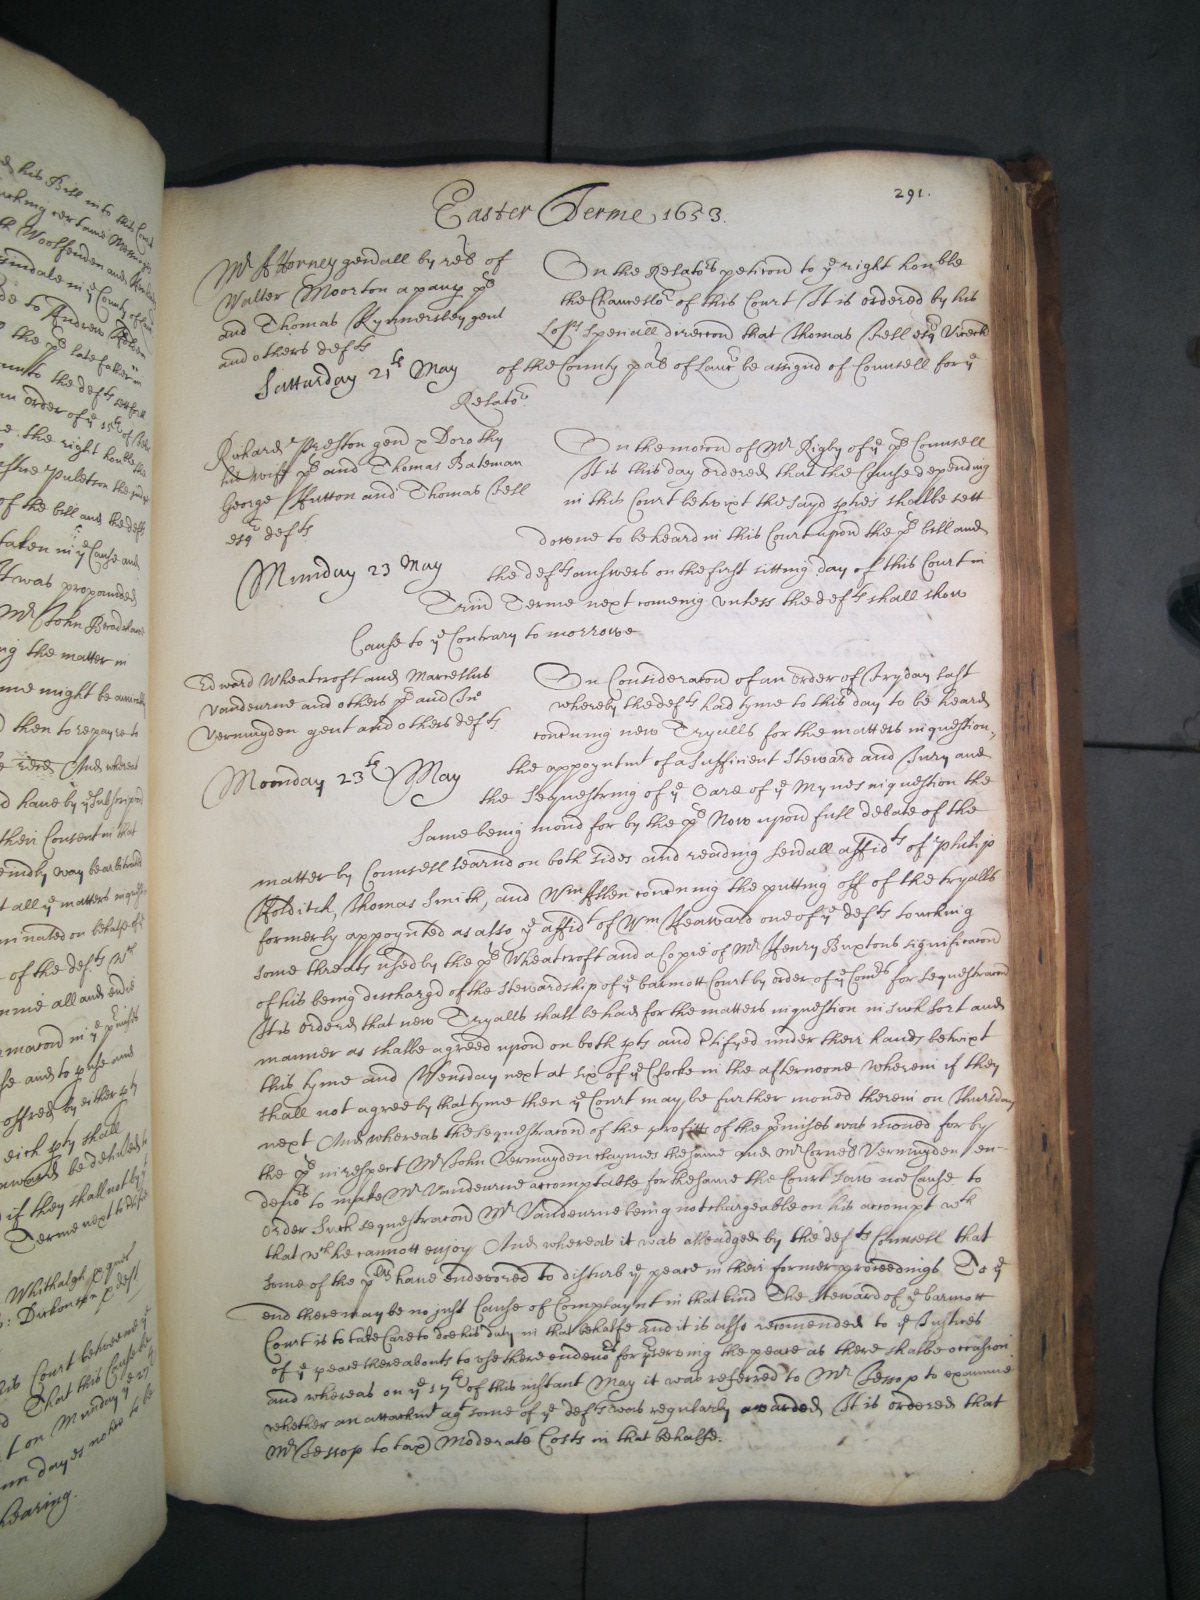 Easter Terme 1653.
291.
Mr Attorney genall by relc̃ of
Walter Moorton a paup plt
and Thomas Kynnersley gent
and others defts
Satturday 21th May
On the Relators peticon to ye right honble
the Chancellor of this Court It is ordered by his
Lopps speciall direccon that Thomas Fell esqr Vicech
of the County pal of Lanc be assignd of Counsell for ye
Relator
Richard Preston gen & Dorothy
his wife plt and Thomas Bateman
George Hutton and Thomas Fell
esqr defts
Munday 23 May
On the mocon of Mr Rigby of ye plt Counsell
It is this day ordered that the Cause depending
in this Court betwixt the sayd pties shalbe sett
downe to be heard in this Court upon the plt bill and
the defts answers on the first sitting day of this Court in
Trin Terme next comeing unless the defts shall show
Cause to ye Contrary to morrowe
Edward Wheatcroft and Marcellus
Vandeurne and others plt and Jno
Vermuyden gent and others defts
Moonday 23th May
On Consideracon of an order of Fryday last
whereby the defts had tyme to this day to be heard
concning new Tryalls for the matters in question,
the appoyntmt of a Sufficient Steward and Jury and
the sequestring of ye Oare of ye Mynes in question the
same being moud for by the plt Now upon full debate of the
matter by Counsell learnd on both sides and reading seuall affidts of Philip
Holditch, Thomas Smith, and Wm Allen concning the putting off of the tryalls
formerly appoynted as also ye affidt of Wm Heaward one of ye defts touching
some threats used by the plt Wheatcroft and a Copie of Mr Henry Buxtons significacon
of his being dischargd of the Stewardship of ye barmott Court by order of ye Comrs for sequestracon
It is ordered that new Tryalls shall be had for the matters in question in such sort and
manner as shalbe agreed upon on both pts and ctifyed under their hands betwixt
this tyme and Wensday next at six of ye Clocke in the afternoone wherein if they
shall not agree by that tyme then ye Court may be further moued therein on Thursday
next And whereas the sequestracon of the profitts of the pmises was moued for by
the plt in respect Mr John Vermuyden claymes the same and Mr Corneds Vermuyden en-
deuors to make Mr Vandeurne accomptable for the same the Court saw noe Cause to
order such sequestracon Mr Vandeurne being not chargeable on his accompt wth
that wch he cannott enjoy And whereas it was alleadged by the defts Counsell that
some of the plts have endevored to disturb ye peace in their former proceedings To ye
end there may be no just Cause of Complaynt in that kind The Steward of ye barmott
Court is to take Care to doe his duty in that behalfe and it is also recomended to ye Justices
of ye peace thereabouts to use there endeuors for pserving the peace as there shalbe occasion
and whereas on ye 17th of this instant May it was referred to Mr Jessop to examine
whether an attachmt agt some of ye defts was regularly awarded It is ordered that
Mr Jessop to tax Moderate Costs in that behalfe.